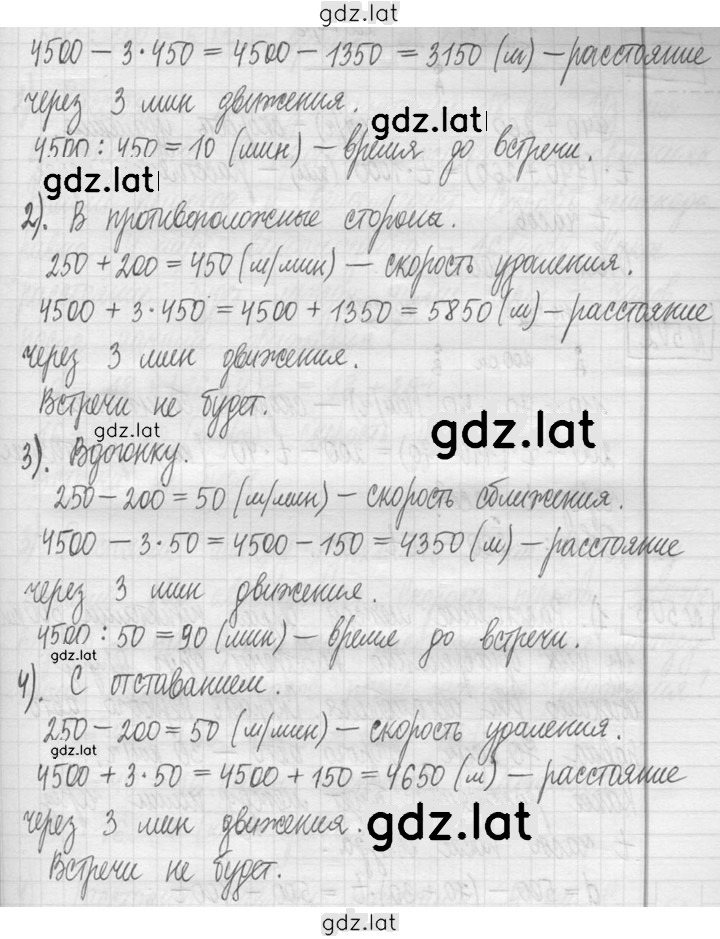 gdz.lat
4500 − 3·450 = 4500 − 1350 = 3150 (м) — расстояние
через 3 мин движения.
gdz.lat
4500 : 450 = 10 (мин) — время до встречи.
gdz.lat
2). В противоположные стороны.
250 + 200 = 450 (м/мин) — скорость удаления.
4500 + 3·450 = 4500 + 1350 = 5850 (м) — расстояние
через 3 мин движения.
Встречи не будет.
gdz.lat
gdz.lat
3). Вдогонку.
250 − 200 = 50 (м/мин) — скорость сближения.
4500 − 3·50 = 4500 − 150 = 4350 (м) — расстояние
через 3 мин движения.
4500 : 50 = 90 (мин) — время до встречи.
gdz.lat
4). С отставанием.
250 − 200 = 50 (м/мин) — скорость удаления.
gdz.lat
4500 + 3·50 = 4500 + 150 = 4650 (м) — расстояние
через 3 мин движения.
gdz.lat
Встречи не будет.
gdz.lat